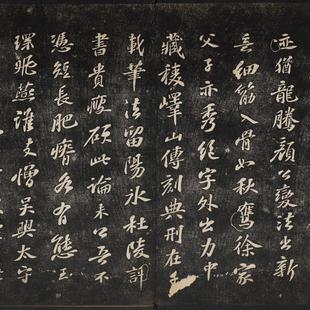 迹猶龍騰顏公變法出新
意細筋入骨如秋鷹徐家
父子亦秀絕字外出力中
藏稜嶧山傳刻典刑在千
載筆法留陽冰杜陵評
書貴瘦硬此論未公吾不
憑短長肥瘠各有態玉
環飛燕誰敢憎吳興太守